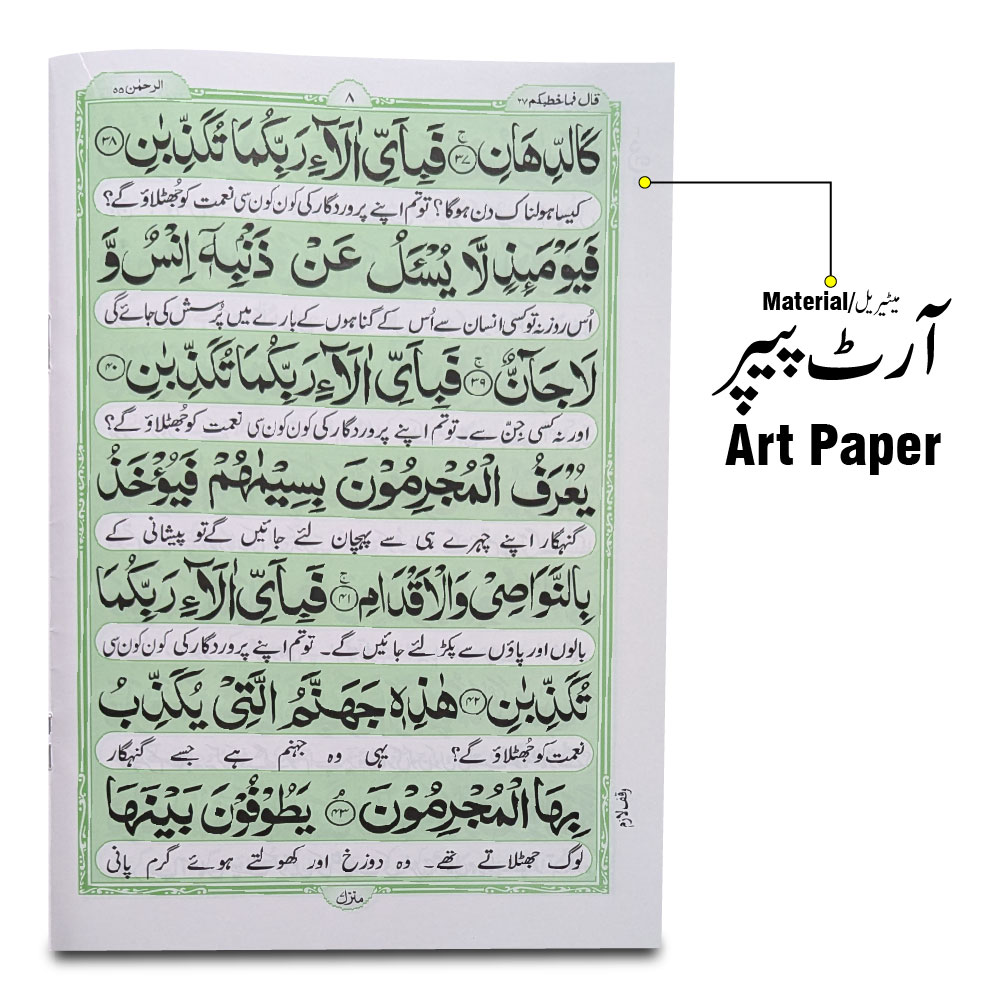 قال فما خطبکم ۲۷
۸
الرحمٰن ۵۵
كَالدِّهَانِ ﴿۳۷﴾ ج فَبِاَيِّ اٰلَآءِ رَبِّكُمَا تُكَذِّبٰنِ ﴿۳۸﴾
کیسا ہولناک دن ہوگا؟ تو تم اپنے پروردگار کی کون کون سی نعمت کو جُھٹلاؤ گے؟
فَيَوْمَىِٕذٍ لَّا يُسْـَٔلُ عَنْ ذَنْۢبِهٖۤ اِنْسٌ وَّ
اُس روز نہ تو کسی انسان سے اُس کے گناہوں کے بارے میں پُرسش کی جائے گی
لَا جَآنٌّ ﴿۳۹﴾ ج فَبِاَيِّ اٰلَآءِ رَبِّكُمَا تُكَذِّبٰنِ ﴿۴۰﴾
اور نہ کسی جِنّ سے۔ تو تم اپنے پروردگار کی کون کون سی نعمت کو جُھٹلاؤ گے؟
يُعْرَفُ الْمُجْرِمُوْنَ بِسِيْمٰىهُمْ فَيُؤْخَذُ
گنہگار اپنے چہرے ہی سے پہچان لئے جائیں گے تو پیشانی کے
بِالنَّوَاصِيْ وَالْاَقْدَامِ ﴿۴۱﴾ ج فَبِاَيِّ اٰلَآءِ رَبِّكُمَا
بالوں اور پاؤں سے پکڑ لئے جائیں گے۔ تو تم اپنے پروردگار کی کون کون سی
تُكَذِّبٰنِ ﴿۴۲﴾ هٰذِهٖ جَهَنَّمُ الَّتِيْ يُكَذِّبُ
نعمت کو جُھٹلاؤ گے؟ یہی وہ جہنم ہے جسے گنہگار
بِهَا الْمُجْرِمُوْنَ ﴿۴۳﴾ م يَطُوْفُوْنَ بَيْنَهَا
وقف لازم
لوگ جھٹلاتے تھے۔ وہ دوزخ اور کھولتے ہوئے گرم پانی
منزل
Material/میٹیریل
آرٹ پیپر
Art Paper